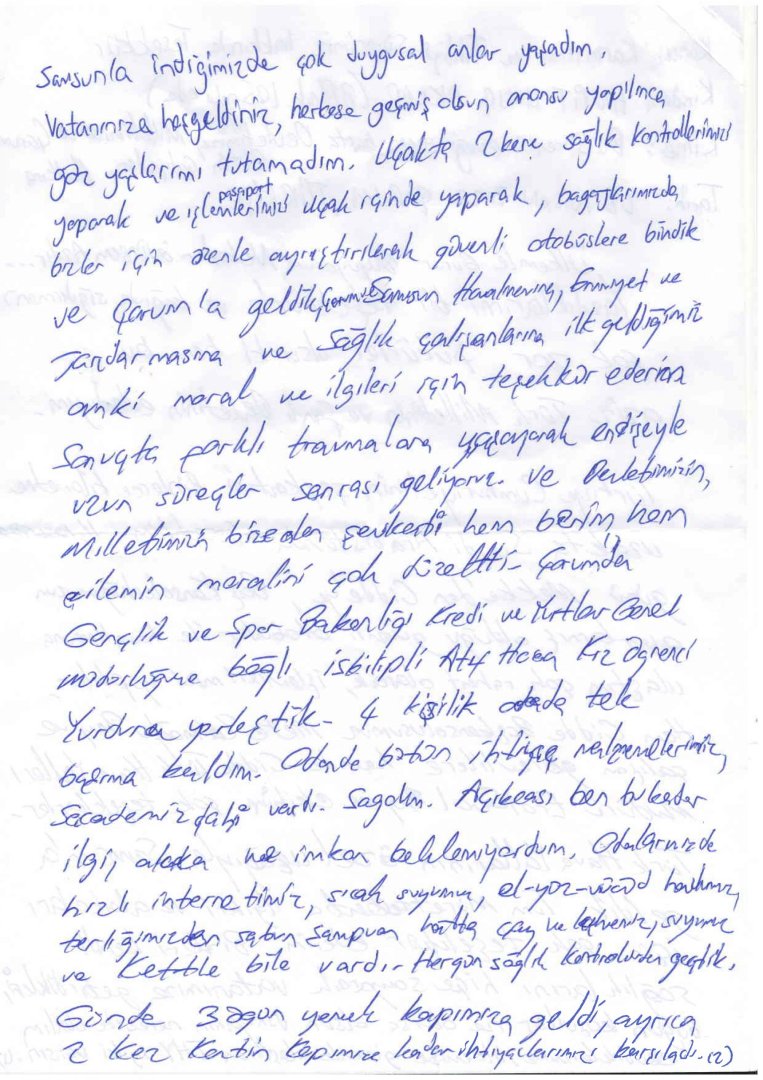 Samsunla indiğimizde çok duygusal anlar yaşadım.
Vatanınıza hoşgeldiniz, herkese geçmiş olsun anonsu yapılınca
göz yaşlarımı tutamadım. Uçakta 2 kere sağlık kontrollerimizi
pasaport
yaparak ve işlemlerimizi uçak içinde yaparak, bagajlarımızda
bizler için özenle ayrıştırılarak güvenli otobüslere bindik
ve Çorum'a geldik, Çorum ve Samsun Havalimanına, Emniyet ve
Jandarmasına ve Sağlık çalışanlarına ilk geldiğimiz
anki moral ve ilgileri için teşekkür ederim
Sonuçta farklı travmalara yaşayarak endişeyle
uzun süreçler sonrası geliyoruz. ve Devletimizin,
Milletimizin bize olan şevkati hem benim hem
ailemin moralini çok düzeltti- Çorum'da
Gençlik ve Spor Bakanlığı Kredi ve Yurtlar Genel
müdürlüğüne bağlı iskilipli Atıf Hoca Kız Öğrenci
Yurduna yerleştik- 4 kişilik odada tek
başıma kaldım. Odamda bütün ihtiyaç malzemelerimiz,
Seccademiz dahi vardı. Sagolun. Açıkcası ben bu kadar
ilgi, alaka ve imkan beklemiyordum. Odalarımızda
hızlı internetimiz, sıcak suyumuz, el-yüz-vücud havlumuz,
terliğimizden sabun şampuan hatta çay ve kahvemiz, suyumuz
ve Kettle bile vardı.- Hergün sağlık kontrolünden geçtik.
Günde 3 öğün yemek kapımıza geldi, ayrıca
2 kez Kantin Kapımıza kadar ihtiyaçlarımızı karşıladı. (2)